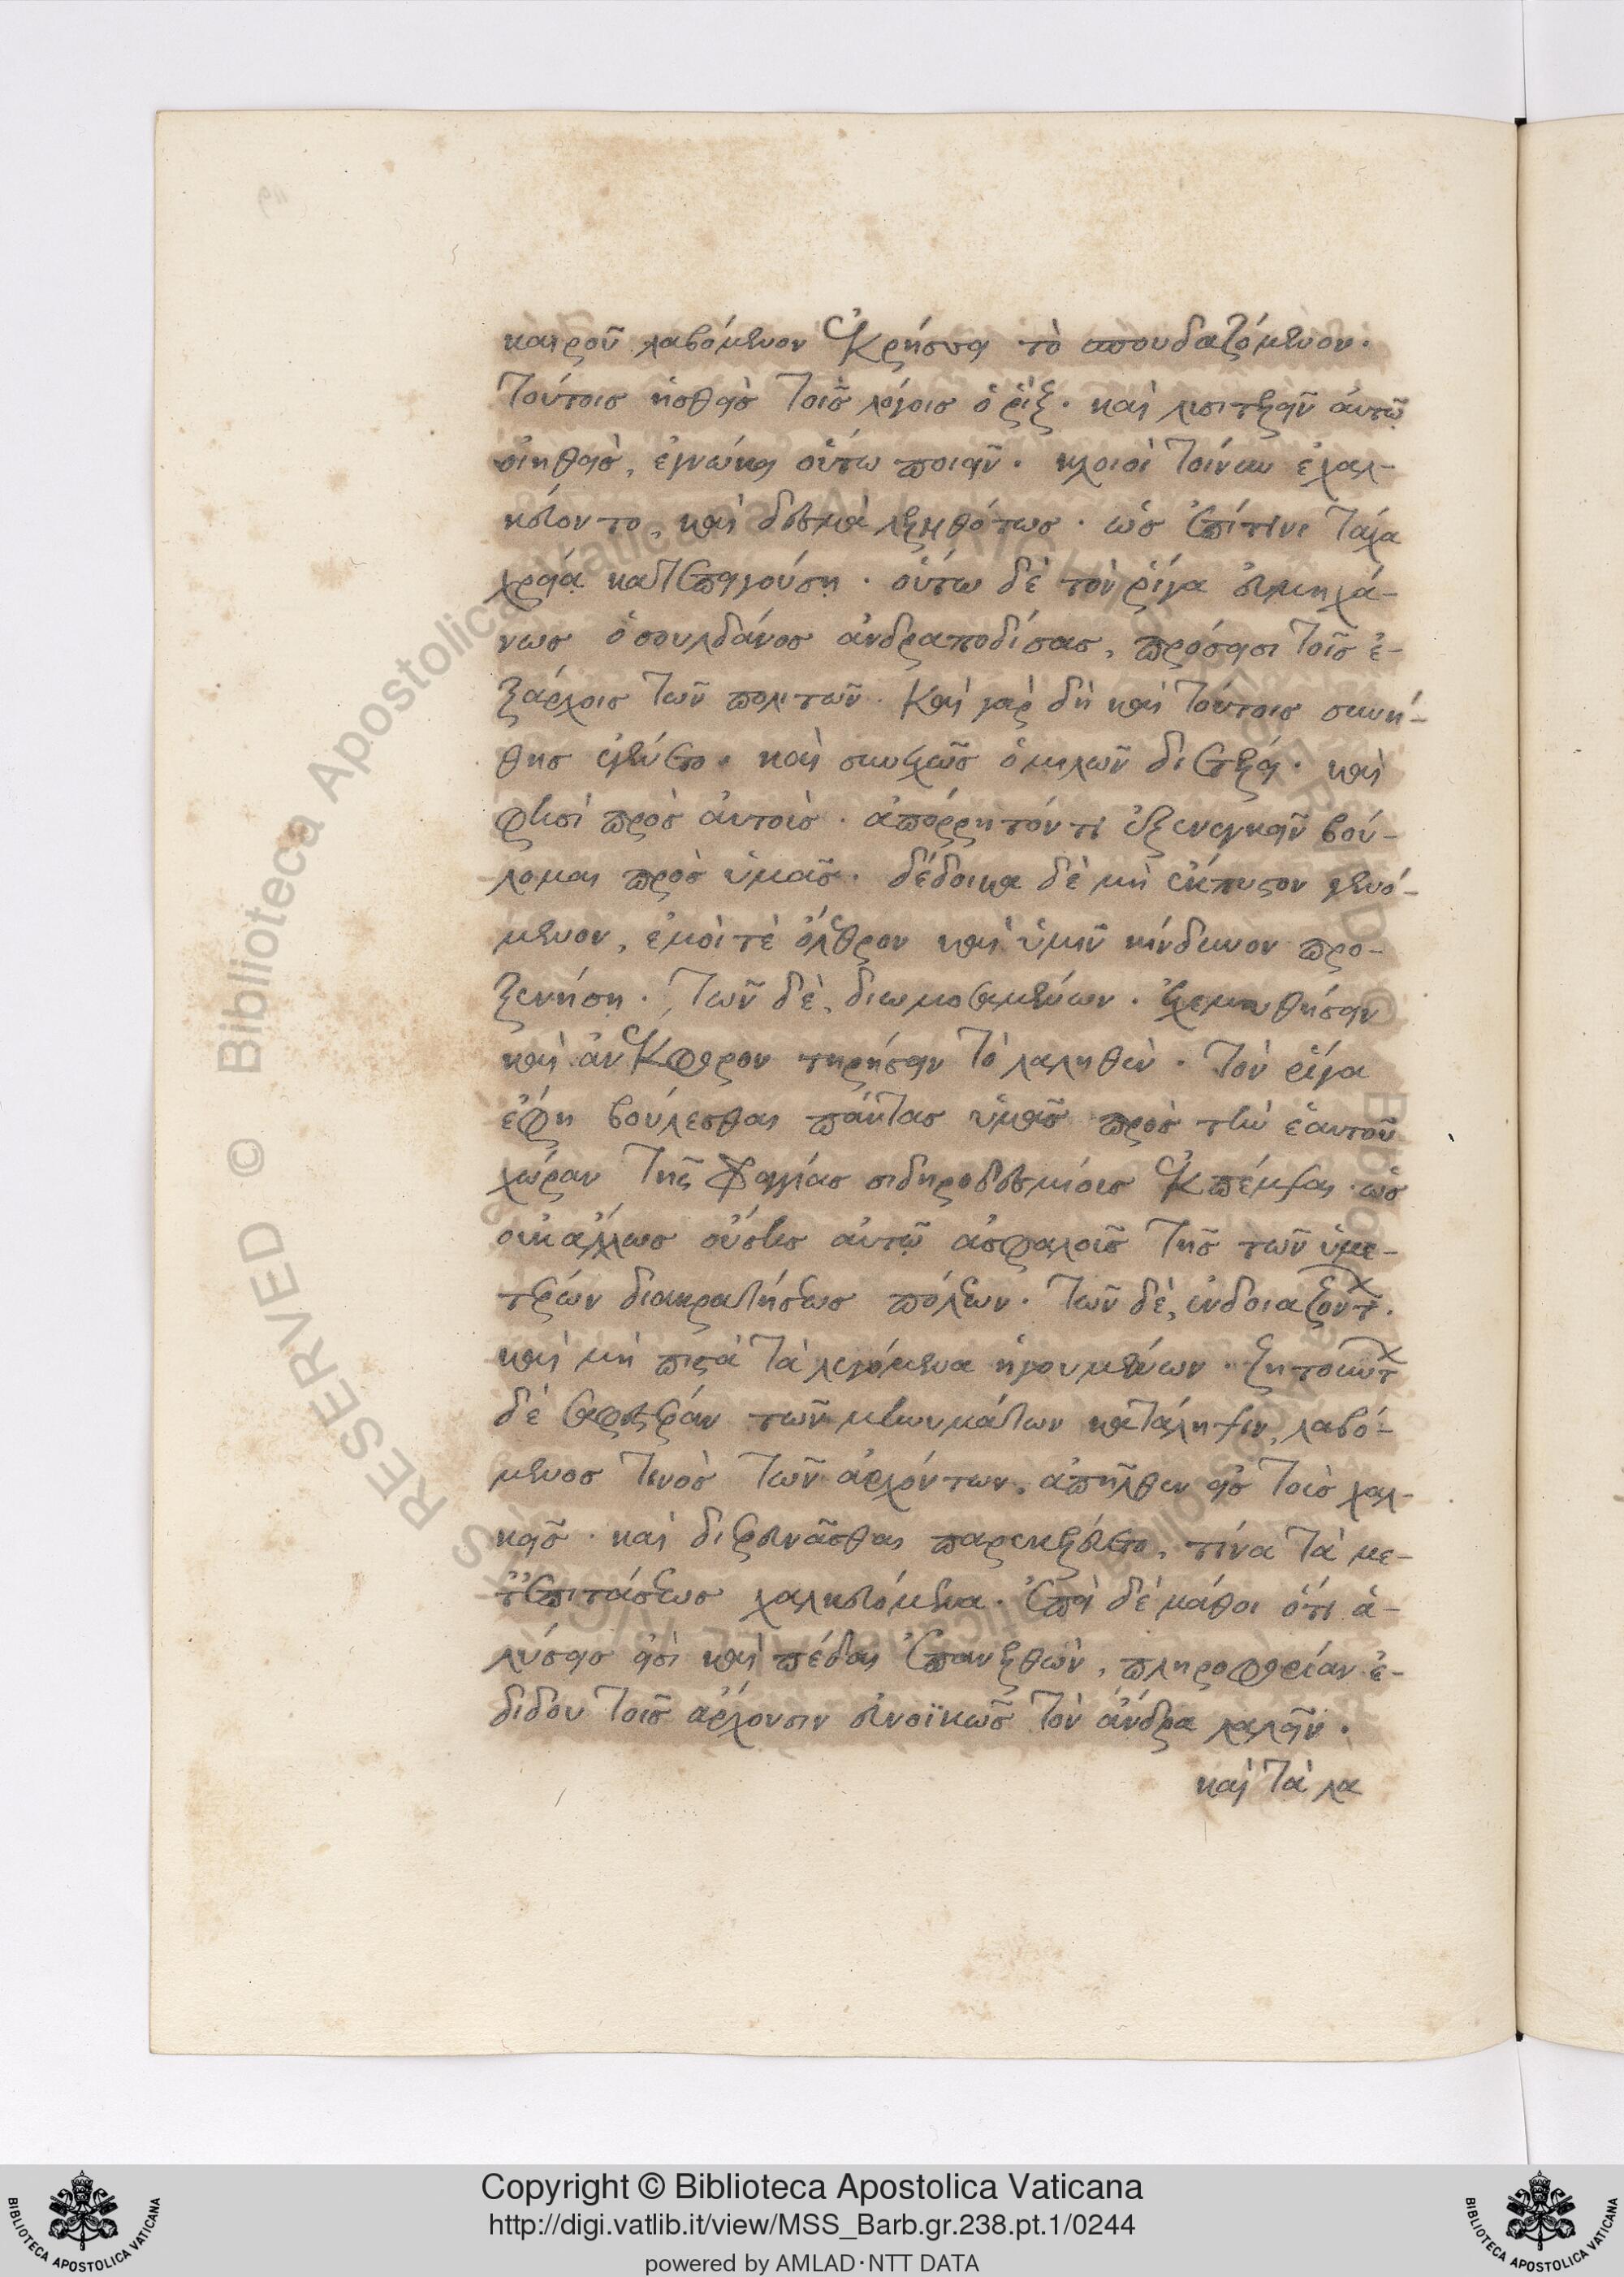 καιροῦ λαβόμενον ἐκρήξαι τὸ σπουδαζόμενον.
Τούτοις ἡσθεὶς τοῖς λόγοις ὁ ρίξ. καὶ λυσιτελεῖν αὐτῷ
οἰηθεὶς, ἐγνώκει οὕτω ποιεῖν. κλοιοὶ τοίνυν ἐχαλ-
κεύοντο, καὶ δεσμὰ λεληθότως. ὡς ἐπί τινι τάχα
χρείᾳ κατεπειγούσῃ. οὕτω δὲ τὸν ρίγα εὐμηχά-
νως ὁ σουλδάνος ἀνδραποδίσας, πρόσεισι τοῖς ἐ-
ξάρχοις τῶν πολιτῶν. Καὶ γὰρ δὴ καὶ τούτοις συνή-
θης ἐγένετο. καὶ συχνῶς ὁμιλῶν διετέλει. καὶ
φησὶ πρὸς αὐτοὺς. ἀπόρρητόν τι ἐξενεγκεῖν βού-
λομαι πρὸς ὑμᾶς. δέδοικα δὲ μὴ ἔκπυστον γενό-
μενον, ἐμοί τὲ ὄλεθρον καὶ ὑμῖν κίνδυνον προ-
ξενήσῃ. Τῶν δὲ, διωμοσαμένων. ἐχεμυθήσειν
καὶ ἀνέκφορον τηρήσειν τὸ λαληθὲν. Τὸν ρίγα
ἔφη βούλεσθαι πάντας ὑμᾶς πρὸς τὴν ἑαυτοῦ
χώραν τῆς Φραγγίας σιδηροδεσμίους ἐκπέμψαι. ὡς
οὐκ ἄλλως οὔσης αὐτῷ ἀσφαλοῦς τῆς τῶν ὑμε-
τέρων διακρατήσεως πόλεων. Τῶν δὲ, ἐνδοιαζόντ.
καὶ μὴ πιστὰ τὰ λεγόμενα ἡγουμένων. ζητούντ
δὲ σαφεστέραν τῶν μηνυμάτων κατάληψιν, λαβό-
μενος τινὸς τῶν ἀρχόντων, ἀπῆλθεν εἰς τοὺς χαλ-
κεῖς. καὶ διερευνᾶσθαι παρεκελεύετο, τίνα τὰ με-
τ' ἐπιτάσεως χαλκευόμενα. ἐπεὶ δὲ μάθοι ὅτι ἁ-
λύσεις εἰσὶ καὶ πέδαι ἐπανελθὼν, πληροφορίαν ἐ-
δίδου τοῖς ἄρχουσιν εὐνοϊκῶς τὸν ἄνδρα λαλεῖν.
καὶ τὰ λα
Copyright © Biblioteca Apostolica Vaticana
http://digi.vatlib.it/view/MSS_Barb.gr.238.pt.1/0244
powered by AMLAD·NTT DATA